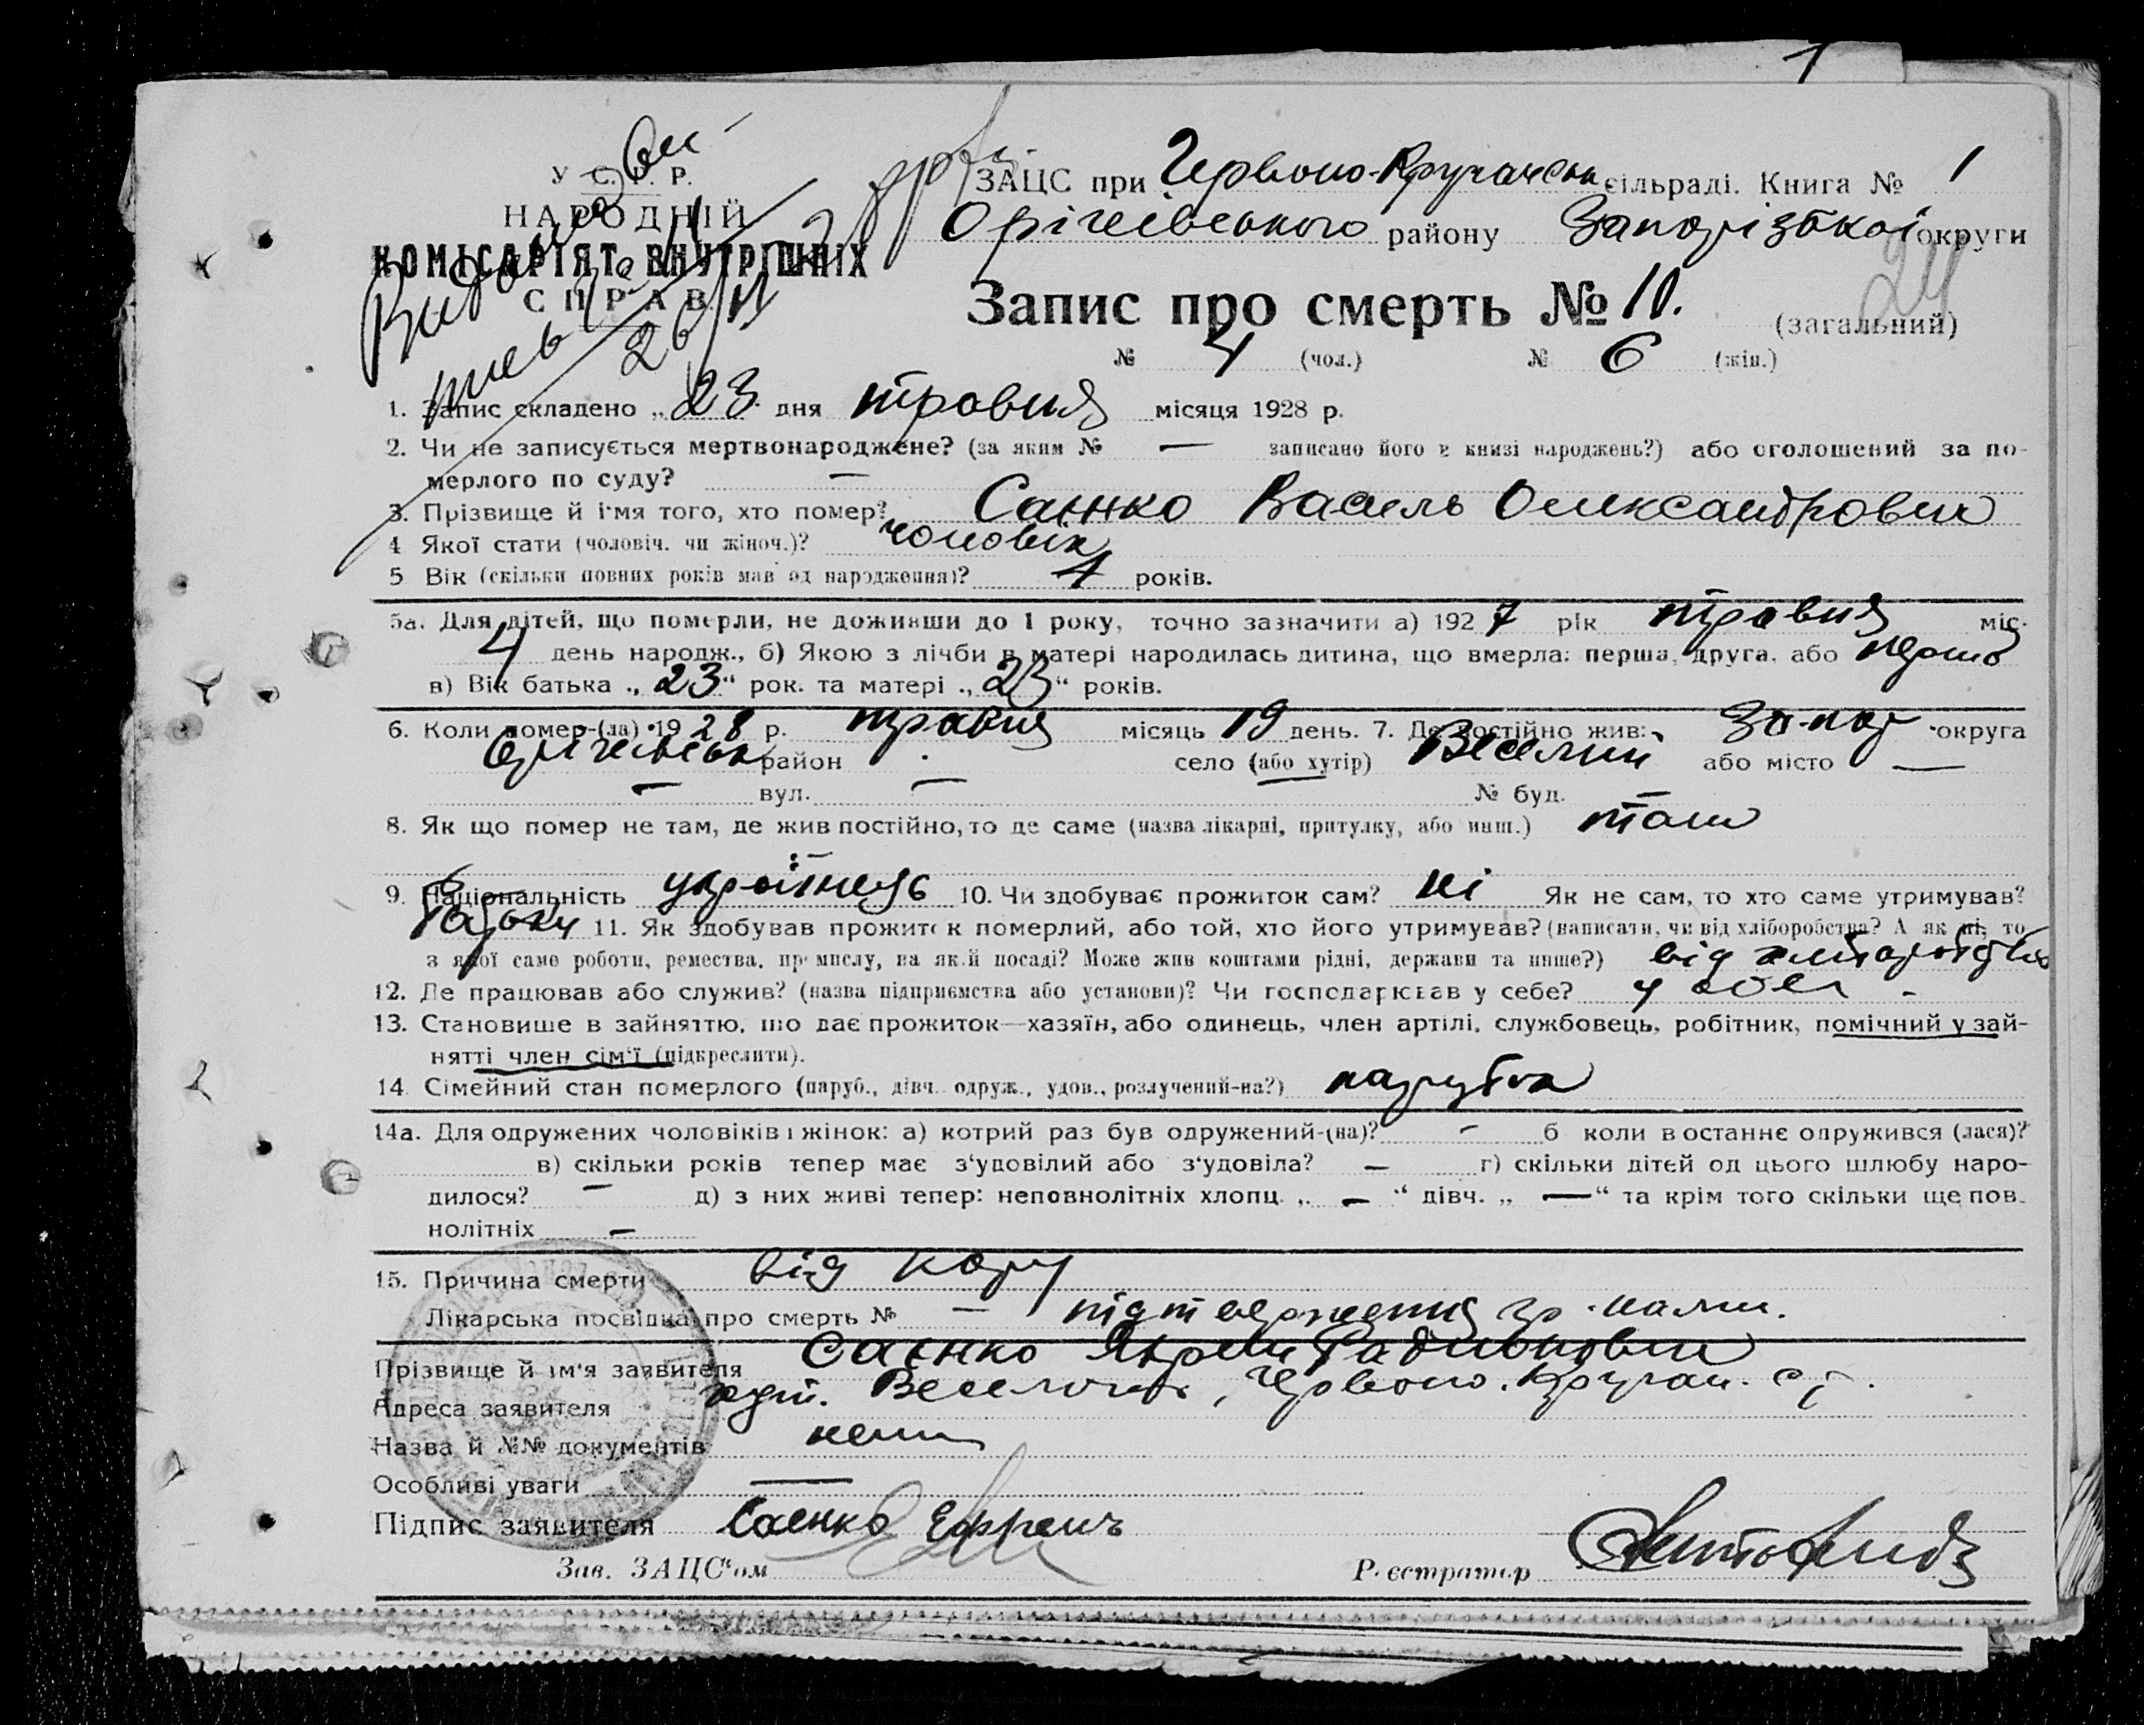 1
У. С. Р. Р.
НАРОДНІЙ
КОМІСАРІЯТ ВНУТРІШНІХ
СПРАВ
26/II
ЗАЦС при Червоно-Кручанськ сільраді. Книга № 1
Оріхівського району Запорізької округи
24
Запис про смерть № 10. (загальний)
№ 4 (чол.) № 6 (жін.)
1. Запис складено „23" дня травня місяця 1928 р.
2. Чи не записується мертвонароджене? (за яким № — записано його в книзі народжень?) або оголошений за по-
мерлого по суду? —
3. Прізвище й ім'я того, хто помер? Саєнко Василь Олександрович
4 Якої стати (чоловіч. чи жіноч.)? чоловік
5 Вік (скільки повних років мав од народження)? 1 років.
5а. Для дітей, що померли, не доживши до 1 року, точно зазначити а) 1927 рік травня міс.
4 день народж., б) Якою з лічби в матері народилась дитина, що вмерла: перша, друга, або перша
в) Вік батька „23" рок. та матері „23" років.
6. Коли помер-(ла) 1928 р. травня місяць 19 день. 7. Де постійно жив: Запор округа
район село (або хутір) Веселий або місто —
— вул. — № буд. —
8. Як що помер не там, де жив постійно, то де саме (назва лікарні, притулку, або инш.) там
9. Національність українець 10. Чи здобуває прожиток сам? ні Як не сам, то хто саме утримував?
батьки 11. Як здобував прожиток померлий, або той, хто його утримував? (написати, чи від хліборобства? А як ні, то
з якої саме роботи, ремества, промислу, на якій посаді? Може жив коштами рідні, держави та инше?) від хліборобства
12. Де працював або служив? (назва підприємства або установи)? Чи господарював у себе? у себе
13. Становище в зайняттю, що дає прожиток—хазяїн, або одинець, член артілі, службовець, робітник, помічний у зай-
нятті член сім'ї (підкреслити).
14. Сімейний стан померлого (паруб., дівч. одруж., удов., розлучений-на?) парубок
14а. Для одружених чоловіків і жінок: а) котрий раз був одружений-(на)? - б коли в останнє одружився (лася)?
в) скільки років тепер має з'удовілий або з'удовіла? — г) скільки дітей од цього шлюбу наро-
дилося? — д) з них живі тепер: неповнолітніх хлопц. „ — " дівч. „ — " та крім того скільки ще пов-
нолітніх —
15. Причина смерти від кору
Лікарська посвідка про смерть № —
Прізвище й ім'я заявителя Саєнко Яхрем Радивонович
Адреса заявителя хут. Веселий, Червоно. Кручан. с/р.
Назва й №№ документів нема
Особливі уваги —
Підпис заявителя Саенко Ефремъ
Зав. ЗАЦС'ом
Реєстратор